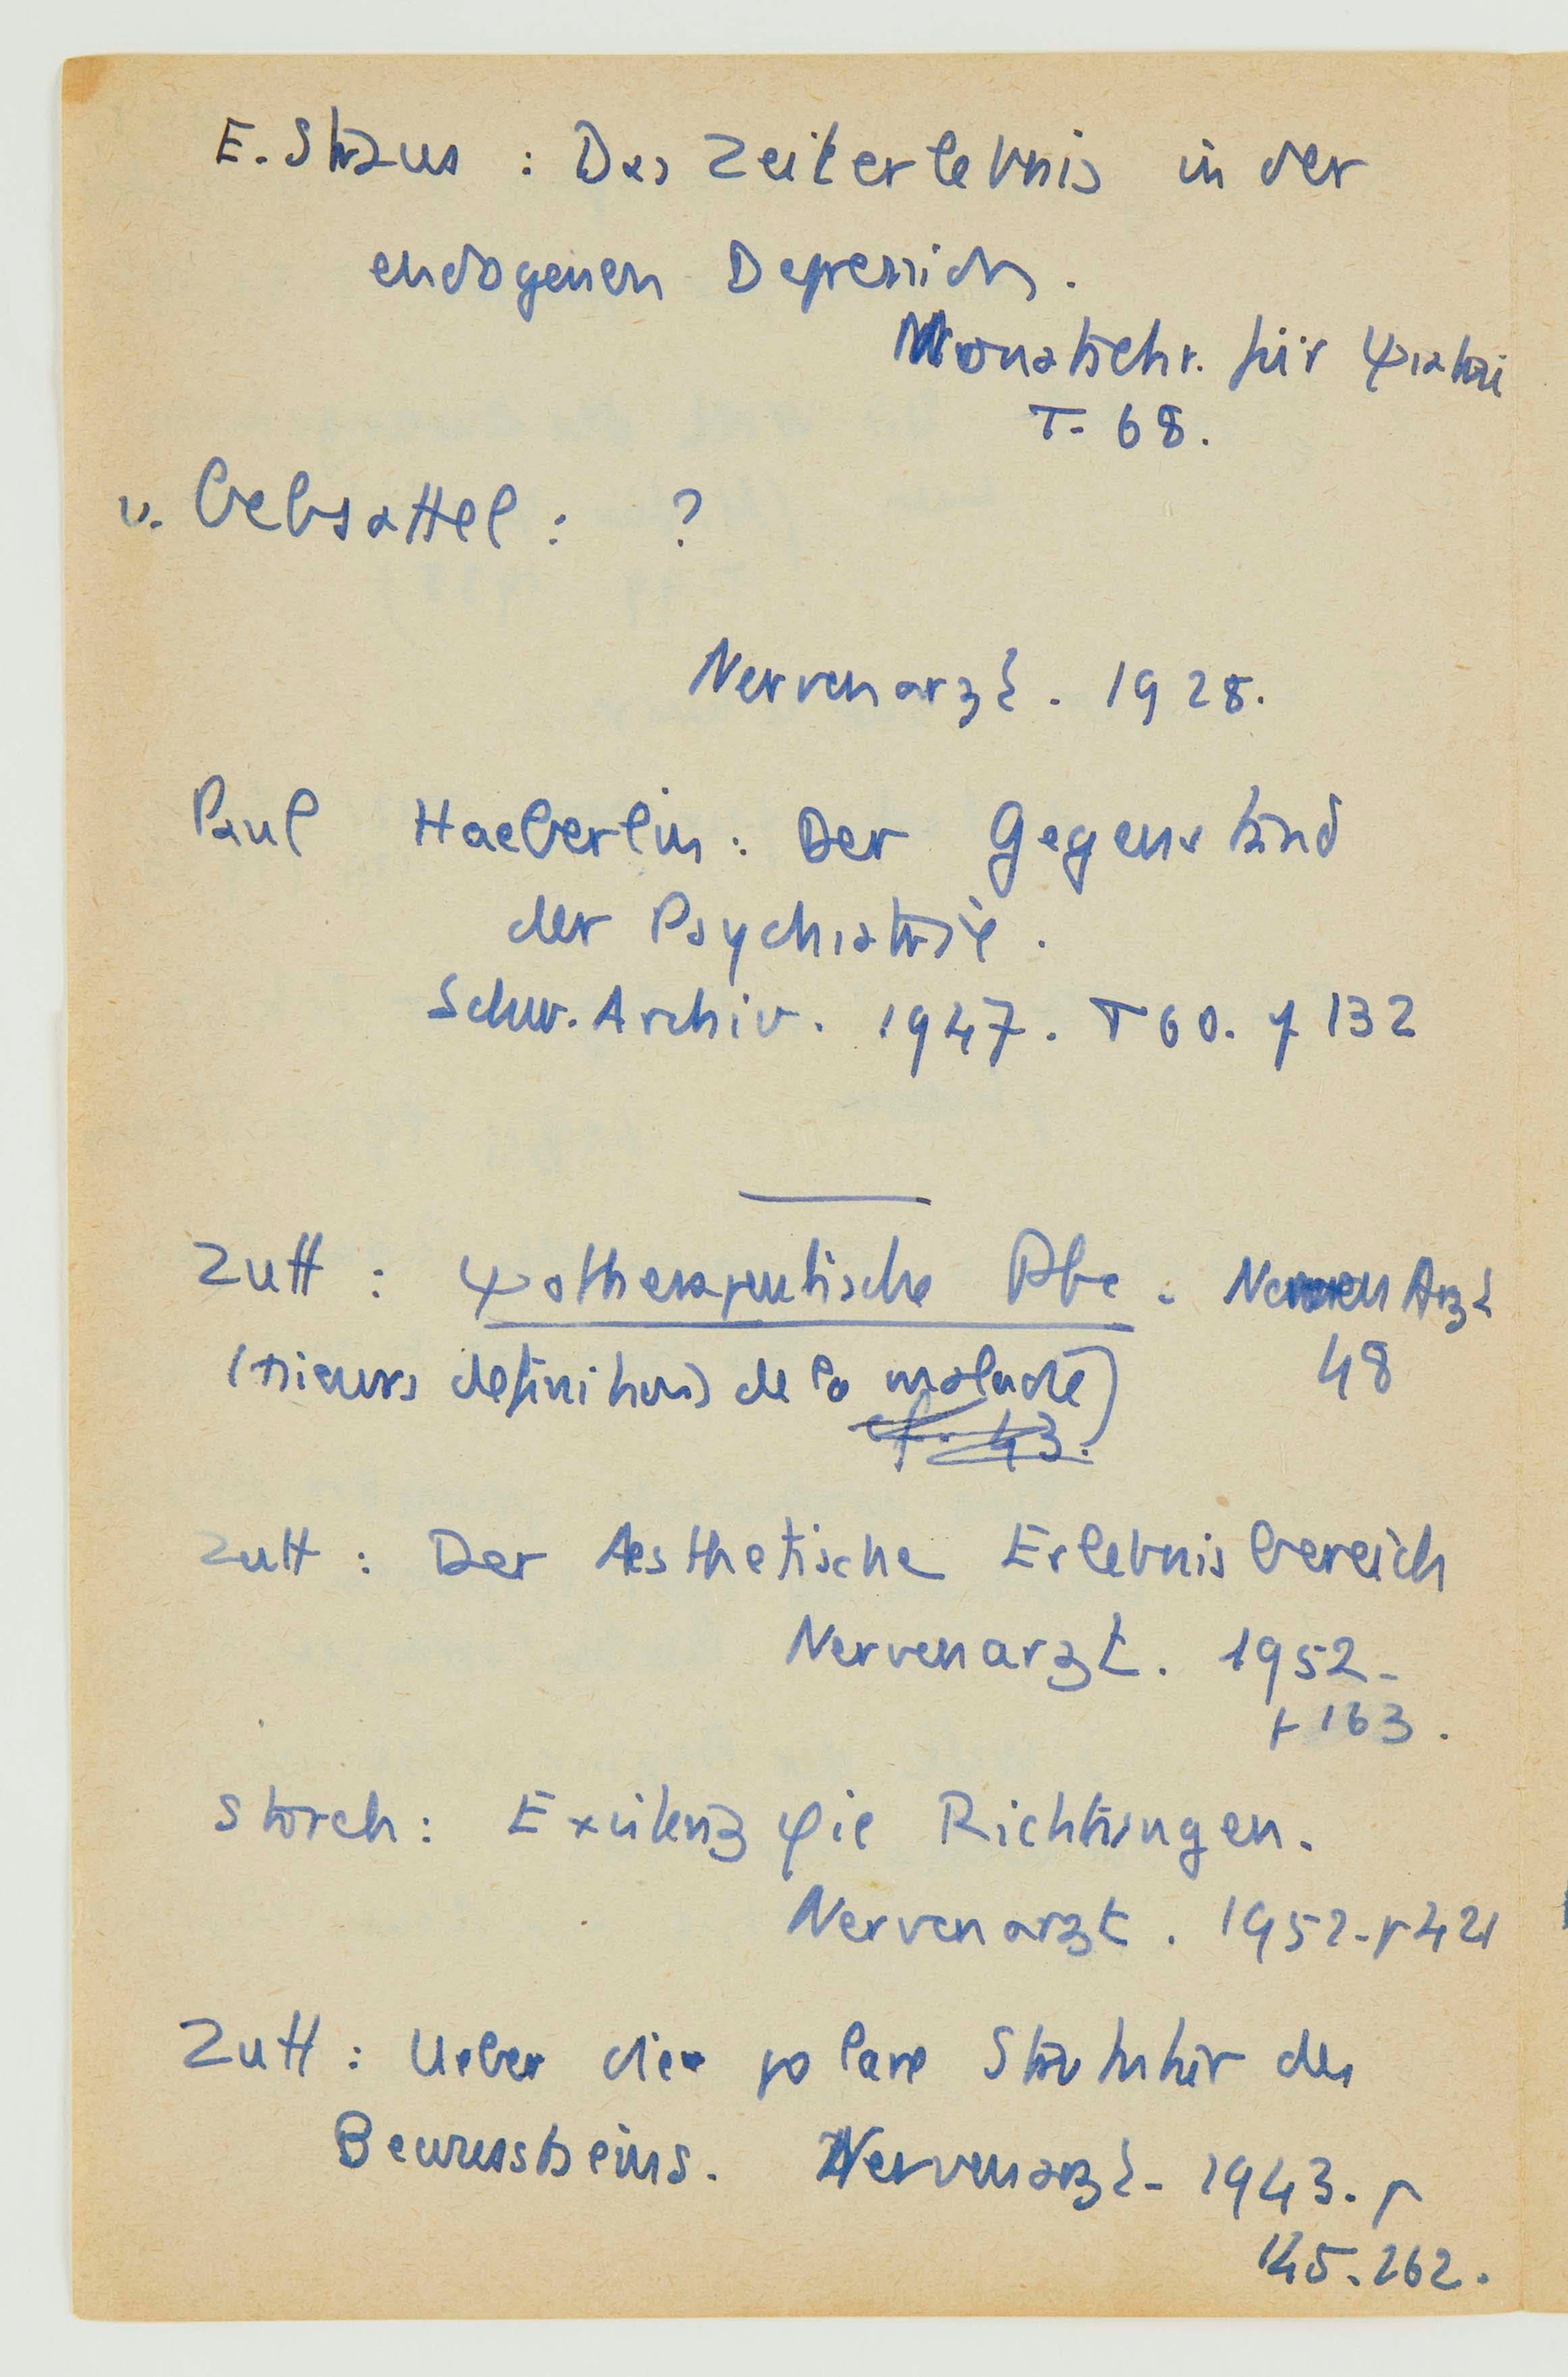 E. Straus : Das Zeiterlebnis in der
endogenen Depression.
Monatschr. für ψiatrie
T. 68.
v. Gebsattel : ?
Nervenarzt. 1928.
Paul Haeberlin : Der Gegenstand
der Psychiatrie.
Schw. Archiv. 1947. T 60. p 132
Zutt : ψotherapeutische Abe. Nerven Arzt
(sieurs definitions de la maladie) 48
cf. 43.
Zutt : Der Aesthetische Erlebnisbereich
Nervenarzt. 1952.
p 163.
Storch : Existenz φie Richtungen.
Nervenarzt. 1952. p 421
Zutt : Ueber die polare Struktur des
Bewusstseins. Nervenarzt. 1943. p
145. 262.